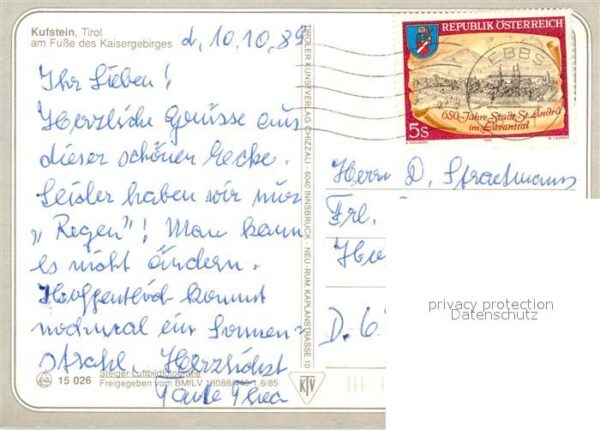 Kufstein, Tirol
am Fuße des Kaisergebirges
d, 10.10.89
Ihr Lieben!
Herzliche Grüsse aus
dieser schönen Ecke.
Leider haben wir nur
„Regen"! Man kann
es nicht ändern.
Hoffentlich kommt
nochmal ein Sonnen-
strahl. Herzlichst
Tante Thea
15 026
Steiger Luftbildfotografie
Freigegeben vom BMILV
TIROLER KUNSTVERLAG CHIZZALI · 6040 INNSBRUCK - NEU-RUM, KAPLANSTRASSE 10
KTV
REPUBLIK ÖSTERREICH
EBBS
650-Jahre Stadt St. Andrä
im Lavanttal
5s
Herrn D.
Frl.
D. 6
privacy protection
Datenschutz